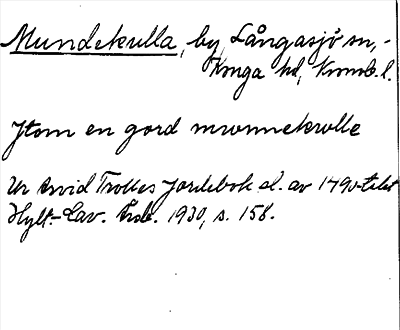 Mundekulla, by, Långasjö sn,-
Konga hd, Kronob. l.
Jtem en gord mwnnekwlle
Ur Arvid Trolles Jordebok sl. av 1490-talet
Hylt.-Cav. Årsb. 1930, s. 158.